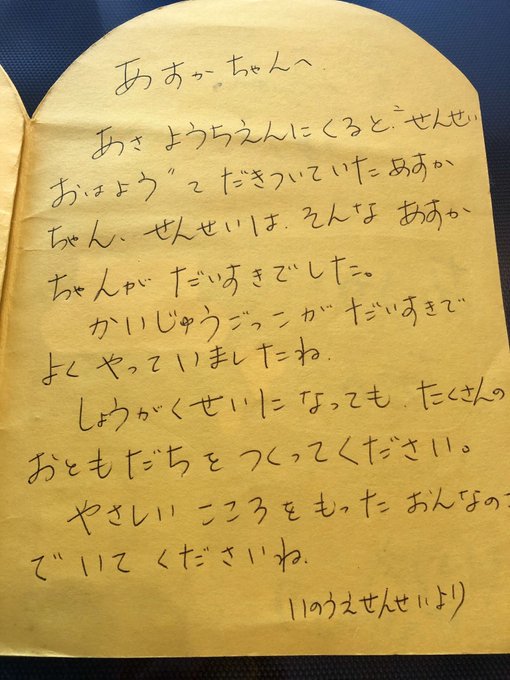 あすかちゃんへ.
あさ ようちえんにくると、"せんせい
おはよう"て だきついていたあすか
ちゃん、せんせいは、そんな あすか
ちゃんが だいすきでした。
かいじゅうごっこが だいすきで
よく やっていましたね.
しょうがくせいに なっても、たくさんの
おともだちを つくってください。
やさしい こころを もった おんなのこ
で いて くださいね.
いのうえせんせいより